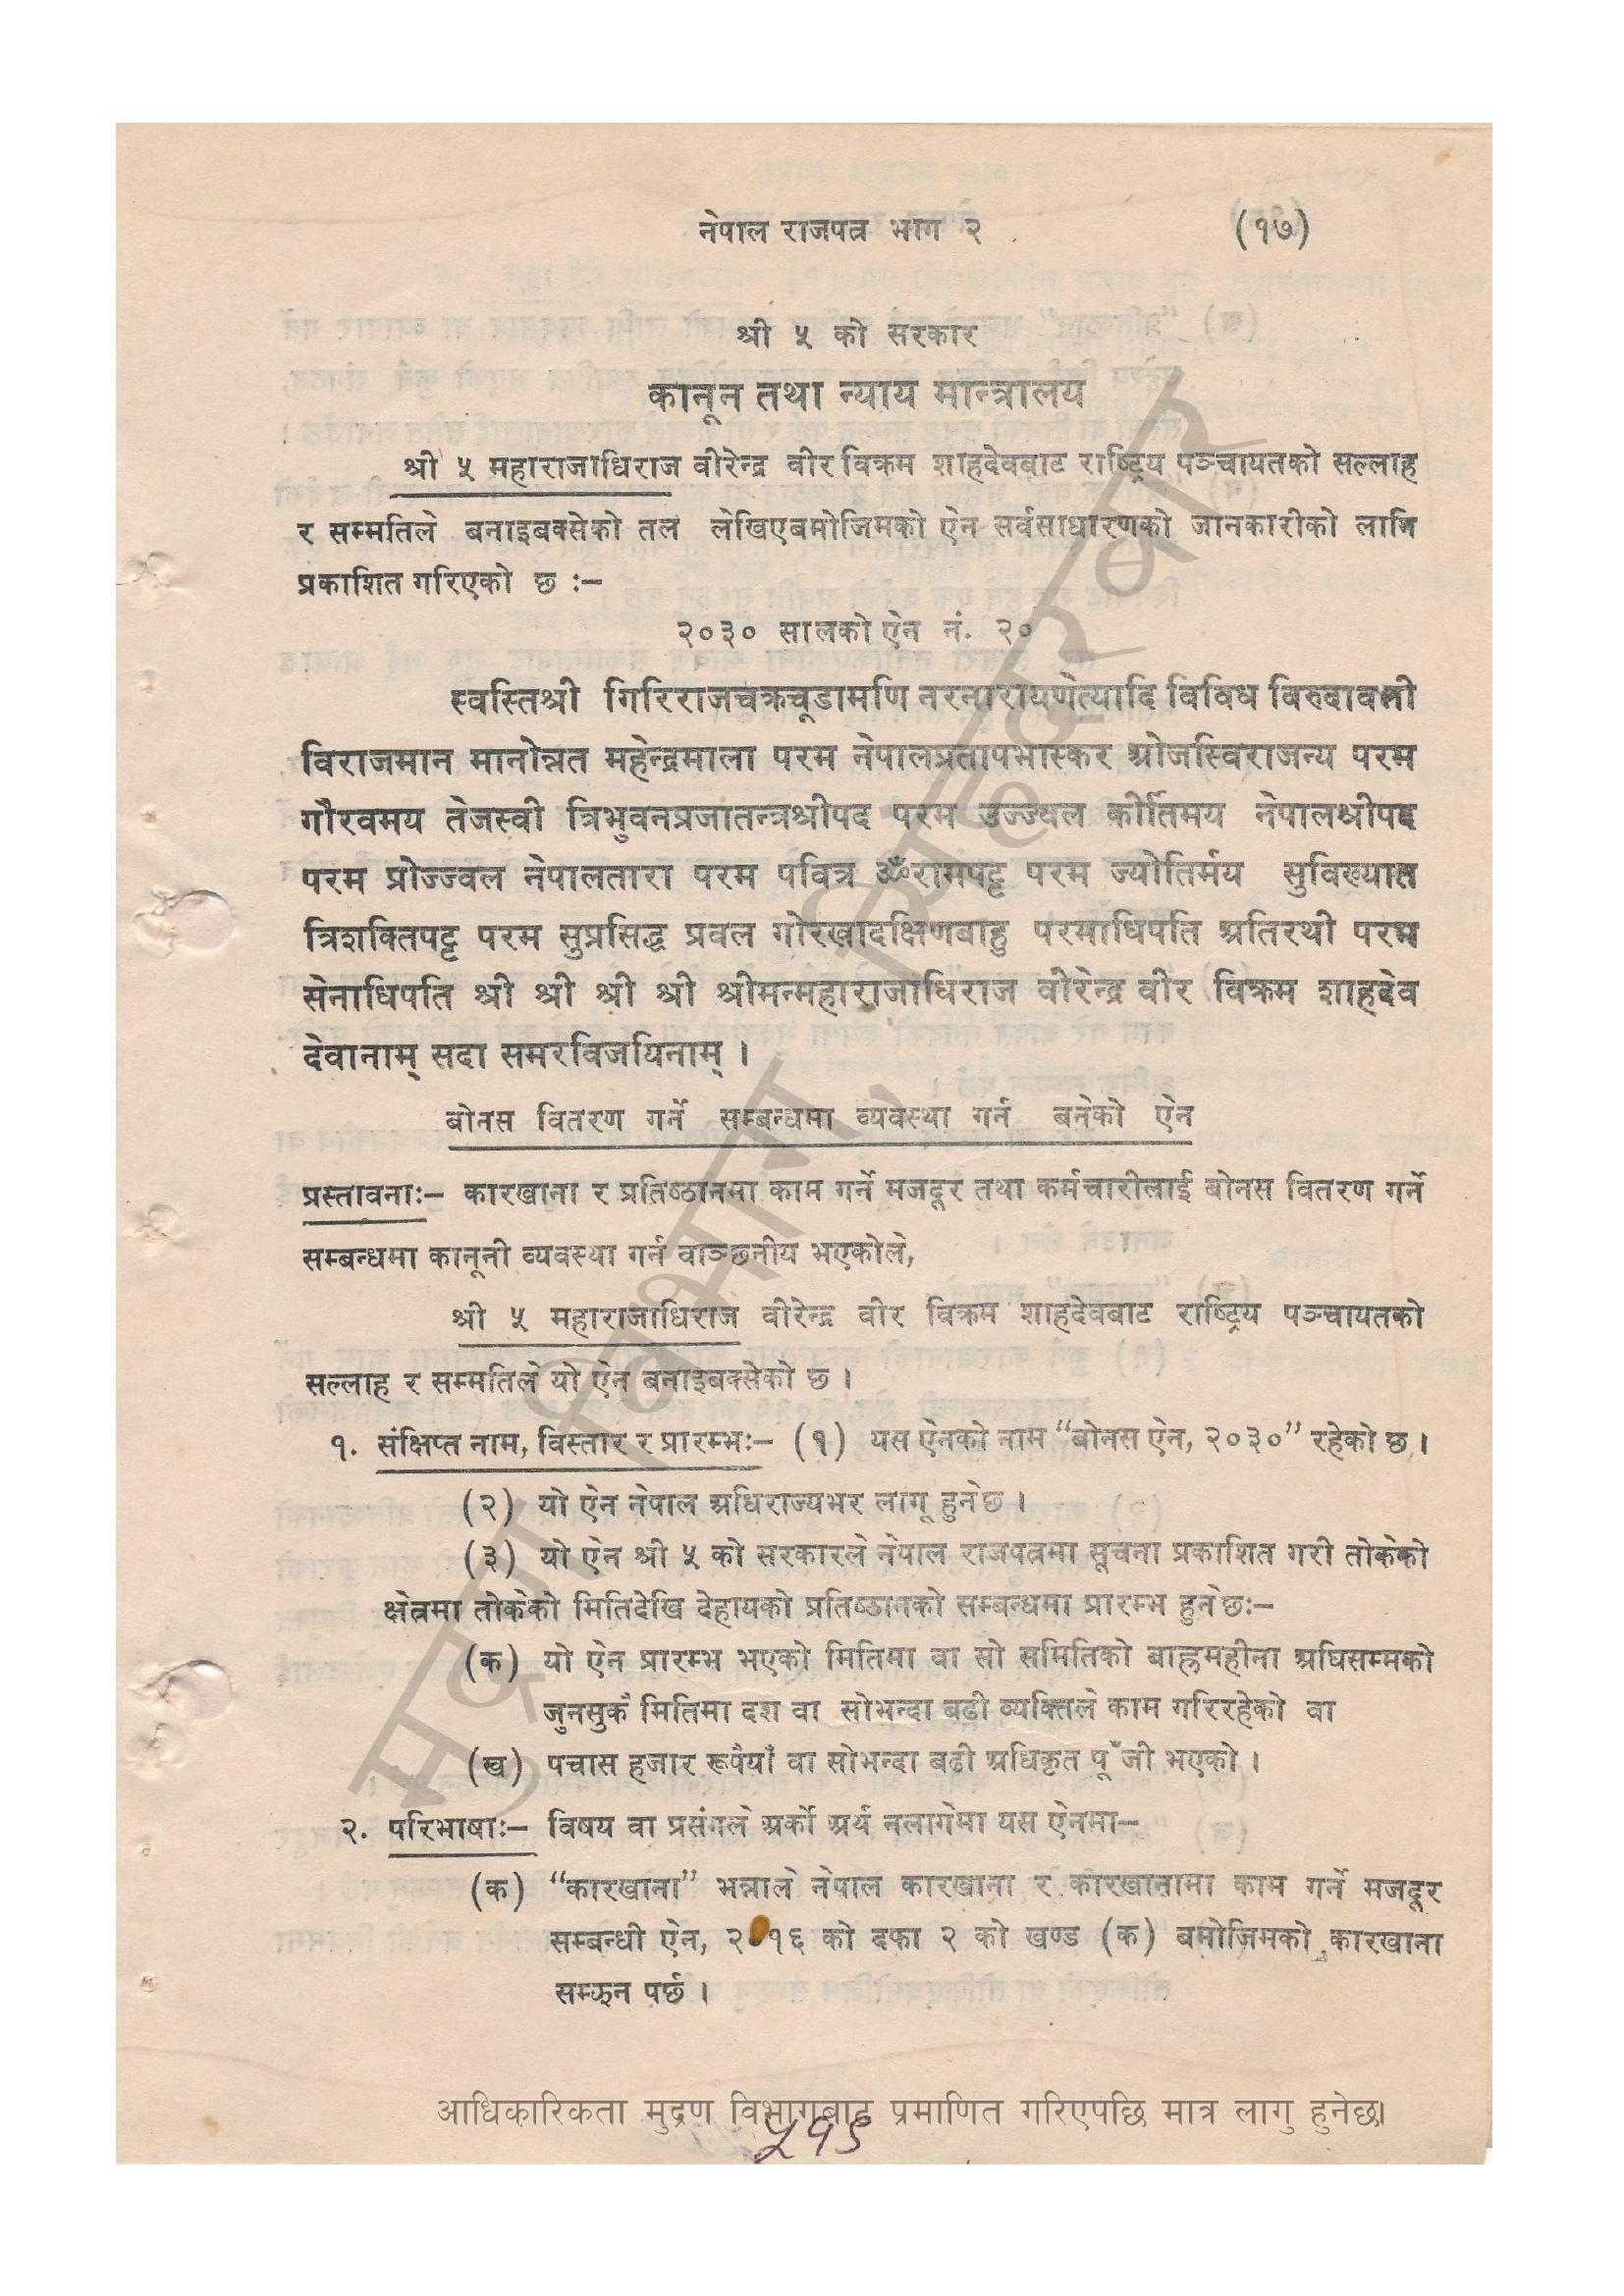 नेपाल राजपत्र भाग २ (१७)
श्री ५ को सरकार
कानून तथा न्याय मान्त्रालय
श्री ५ महाराजाधिराज वीरेन्द्र वीर विक्रम शाहदेवबाट राष्ट्रिय पञ्चायतको सल्लाह
र सम्मतिले बनाइबक्सेको तल लेखिएबमोजिमको ऐन सर्वसाधारणको जानकारीको लागि
प्रकाशित गरिएको छ :–
२०३० सालको ऐन नं. २०
स्वस्तिश्री गिरिराजचक्रचूडामणि नरनारायणेत्यादि विविध विरुदावली
विराजमान मानोन्नत महेन्द्रमाला परम नेपालप्रतापभास्कर ओजस्विराजन्य परम
गौरवमय तेजस्वी त्रिभुवनप्रजातन्त्रश्रीपद परम उज्ज्वल कीर्तिमय नेपालश्रीपद
परम प्रोज्ज्वल नेपालतारा परम पवित्र ॐरामपट्ट परम ज्योतिर्मय सुविख्यात
त्रिशक्तिपट्ट परम सुप्रसिद्ध प्रवल गोरखादक्षिणबाहु परमाधिपति अतिरथी परम
सेनाधिपति श्री श्री श्री श्री श्रीमन्महाराजाधिराज वीरेन्द्र वीर विक्रम शाहदेव
देवानाम् सदा समरविजयिनाम् ।
बोनस वितरण गर्ने सम्बन्धमा व्यवस्था गर्न बनेको ऐन
प्रस्तावनाः– कारखाना र प्रतिष्ठानमा काम गर्ने मजदूर तथा कर्मचारीलाई बोनस वितरण गर्ने
सम्बन्धमा कानूनी व्यवस्था गर्न वाञ्छनीय भएकोले,
श्री ५ महाराजाधिराज वीरेन्द्र वीर विक्रम शाहदेवबाट राष्ट्रिय पञ्चायतको
सल्लाह र सम्मतिले यो ऐन बनाइबक्सेको छ ।
१. संक्षिप्त नाम, विस्तार र प्रारम्भः– (१) यस ऐनको नाम “बोनस ऐन, २०३०” रहेको छ ।
(२) यो ऐन नेपाल अधिराज्यभर लागू हुनेछ ।
(३) यो ऐन श्री ५ को सरकारले नेपाल राजपत्रमा सूचना प्रकाशित गरी तोकेको
क्षेत्रमा तोकेको मितिदेखि देहायको प्रतिष्ठानको सम्बन्धमा प्रारम्भ हुनेछः–
(क) यो ऐन प्रारम्भ भएको मितिमा वा सो समितिको बाह्रमहीना अघिसम्मको
जुनसुकै मितिमा दश वा सोभन्दा बढी व्यक्तिले काम गरिरहेको वा
(ख) पचास हजार रूपैयाँ वा सोभन्दा बढी अधिकृत पूँजी भएको ।
२. परिभाषाः– विषय वा प्रसंगले अर्को अर्थ नलागेमा यस ऐनमा–
(क) “कारखाना” भन्नाले नेपाल कारखाना र कारखानामा काम गर्ने मजदूर
सम्बन्धी ऐन, २०१६ को दफा २ को खण्ड (क) बमोजिमको कारखाना
सम्झन पर्छ ।
मुद्रण विभाग, सिंहदरबार
आधिकारिकता मुद्रण विभागबाट प्रमाणित गरिएपछि मात्र लागु हुनेछ।
५१९